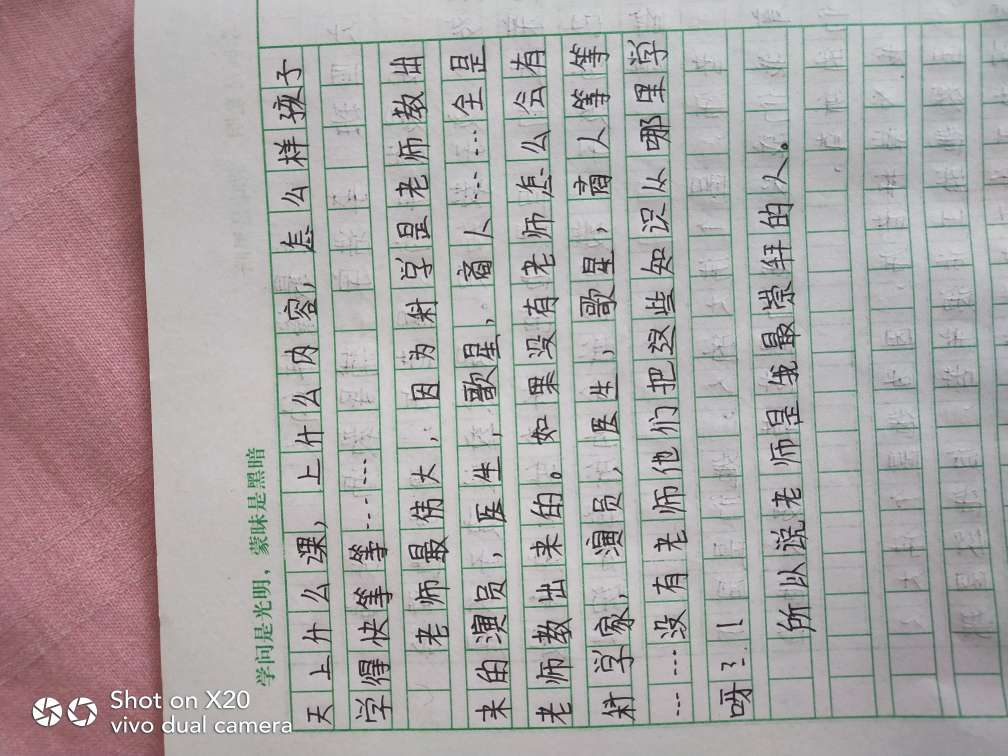 学问是光明，蒙昧是黑暗
天上什么课，上什么内容，怎么样孩子
学得快等等……
老师最伟大，因为科学是老师教出
来的演员，医生，歌星，商人……全是
老师教出来的。如果没有老师怎么会有
科学家，演员，医生，歌星，商人等等
……没有老师他们把这些知识从哪里学
呀？！
所以说老师是我最崇拜的人。
Shot on X20
vivo dual camera